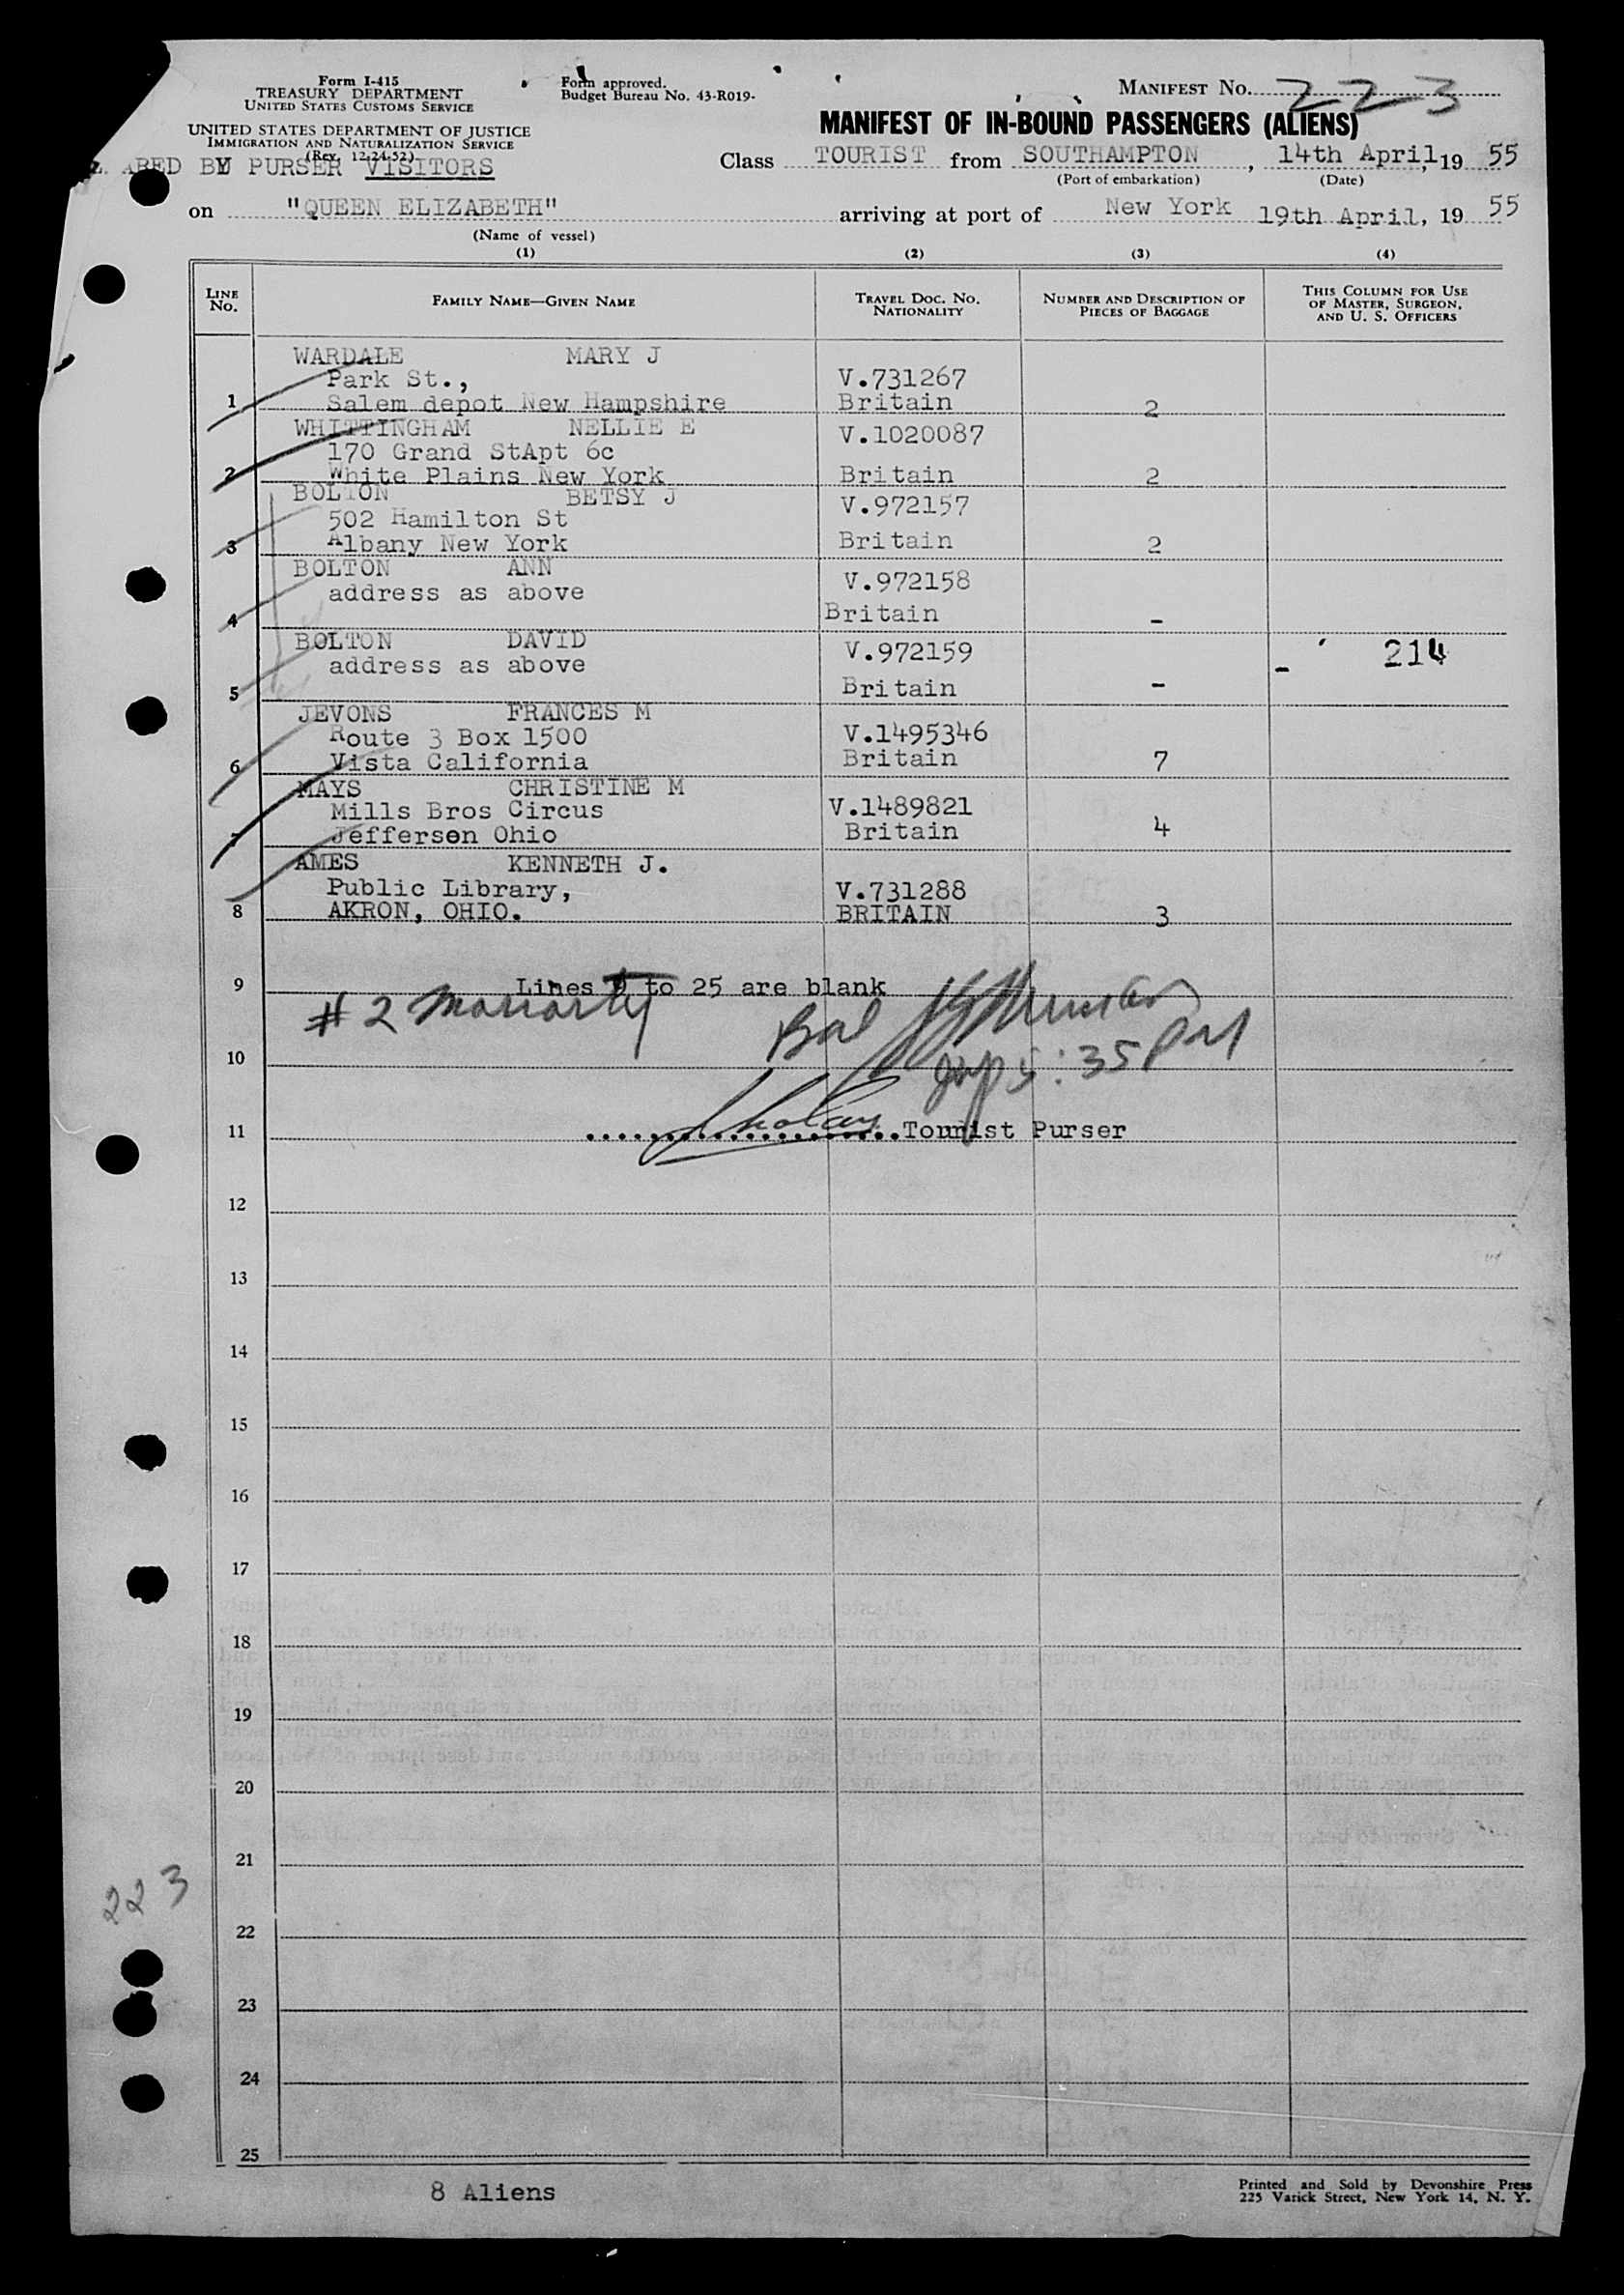 Form I-415
TREASURY DEPARTMENT
UNITED STATES CUSTOMS SERVICE
UNITED STATES DEPARTMENT OF JUSTICE
IMMIGRATION AND NATURALIZATION SERVICE
(Rev. 12-24-52)
Form approved.
Budget Bureau No. 43-R019-
MANIFEST No. 223
MANIFEST OF IN-BOUND PASSENGERS (ALIENS)
ARED BY PURSER VISITORS
Class TOURIST from SOUTHAMPTON, 14th April, 19 55
(Port of embarkation) (Date)
on "QUEEN ELIZABETH" arriving at port of New York 19th April, 19 55
(Name of vessel)
(1) (2) (3) (4)
LINE No. FAMILY NAME—GIVEN NAME TRAVEL DOC. No. NATIONALITY NUMBER AND DESCRIPTION OF PIECES OF BAGGAGE THIS COLUMN FOR USE OF MASTER, SURGEON, AND U. S. OFFICERS
WARDALE MARY J
Park St., V.731267
1 Salem depot New Hampshire Britain 2
WHITTINGHAM NELLIE E V.1020087
170 Grand StApt 6c
2 White Plains New York Britain 2
BOLTON BETSY J V.972157
502 Hamilton St
3 Albany New York Britain 2
BOLTON ANN V.972158
address as above
4 Britain -
BOLTON DAVID V.972159 214
address as above
5 Britain - -
JEVONS FRANCES M
Route 3 Box 1500 V.1495346
6 Vista California Britain 7
MAYS CHRISTINE M
Mills Bros Circus V.1489821
7 Jefferson Ohio Britain 4
AMES KENNETH J.
Public Library, V.731288
8 AKRON, OHIO. BRITAIN 3
9 Lines 9 to 25 are blank
# 2 Moriarty
10 5:35 PM
11 Tourist Purser
12
13
14
15
16
17
18
19
20
21
223
22
23
24
25
8 Aliens
Printed and Sold by Devonshire Press
225 Varick Street, New York 14, N. Y.